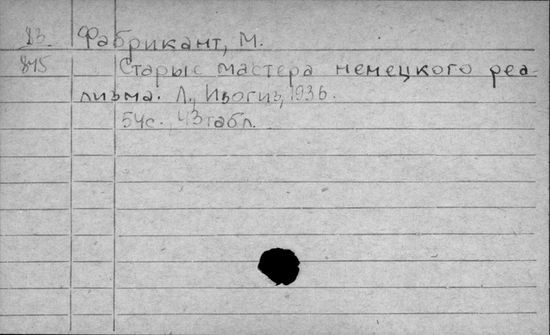 13 Фабрикант, М.
845 Старые мастера немецкого реа-
лизма. Л., Изогиз, 1936.
54с. 43 табл.